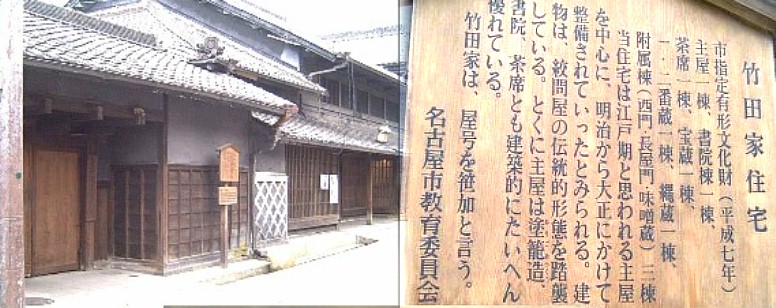 竹田家住宅
市指定有形文化財（平成七年）
主屋一棟、書院棟一棟、
茶席一棟、宝蔵一棟、
一・二番蔵一棟、縄蔵一棟、
附属棟（西門・長屋門・味噌蔵）三棟
当住宅は江戸期と思われる主屋
を中心に、明治から大正にかけて
整備されていったとみられる。建
物は、絞問屋の伝統的形態を踏襲
している。とくに主屋は塗籠造、
書院、茶席とも建築的にたいへん
優れている。
竹田家は、屋号を笹加と言う。
名古屋市教育委員会